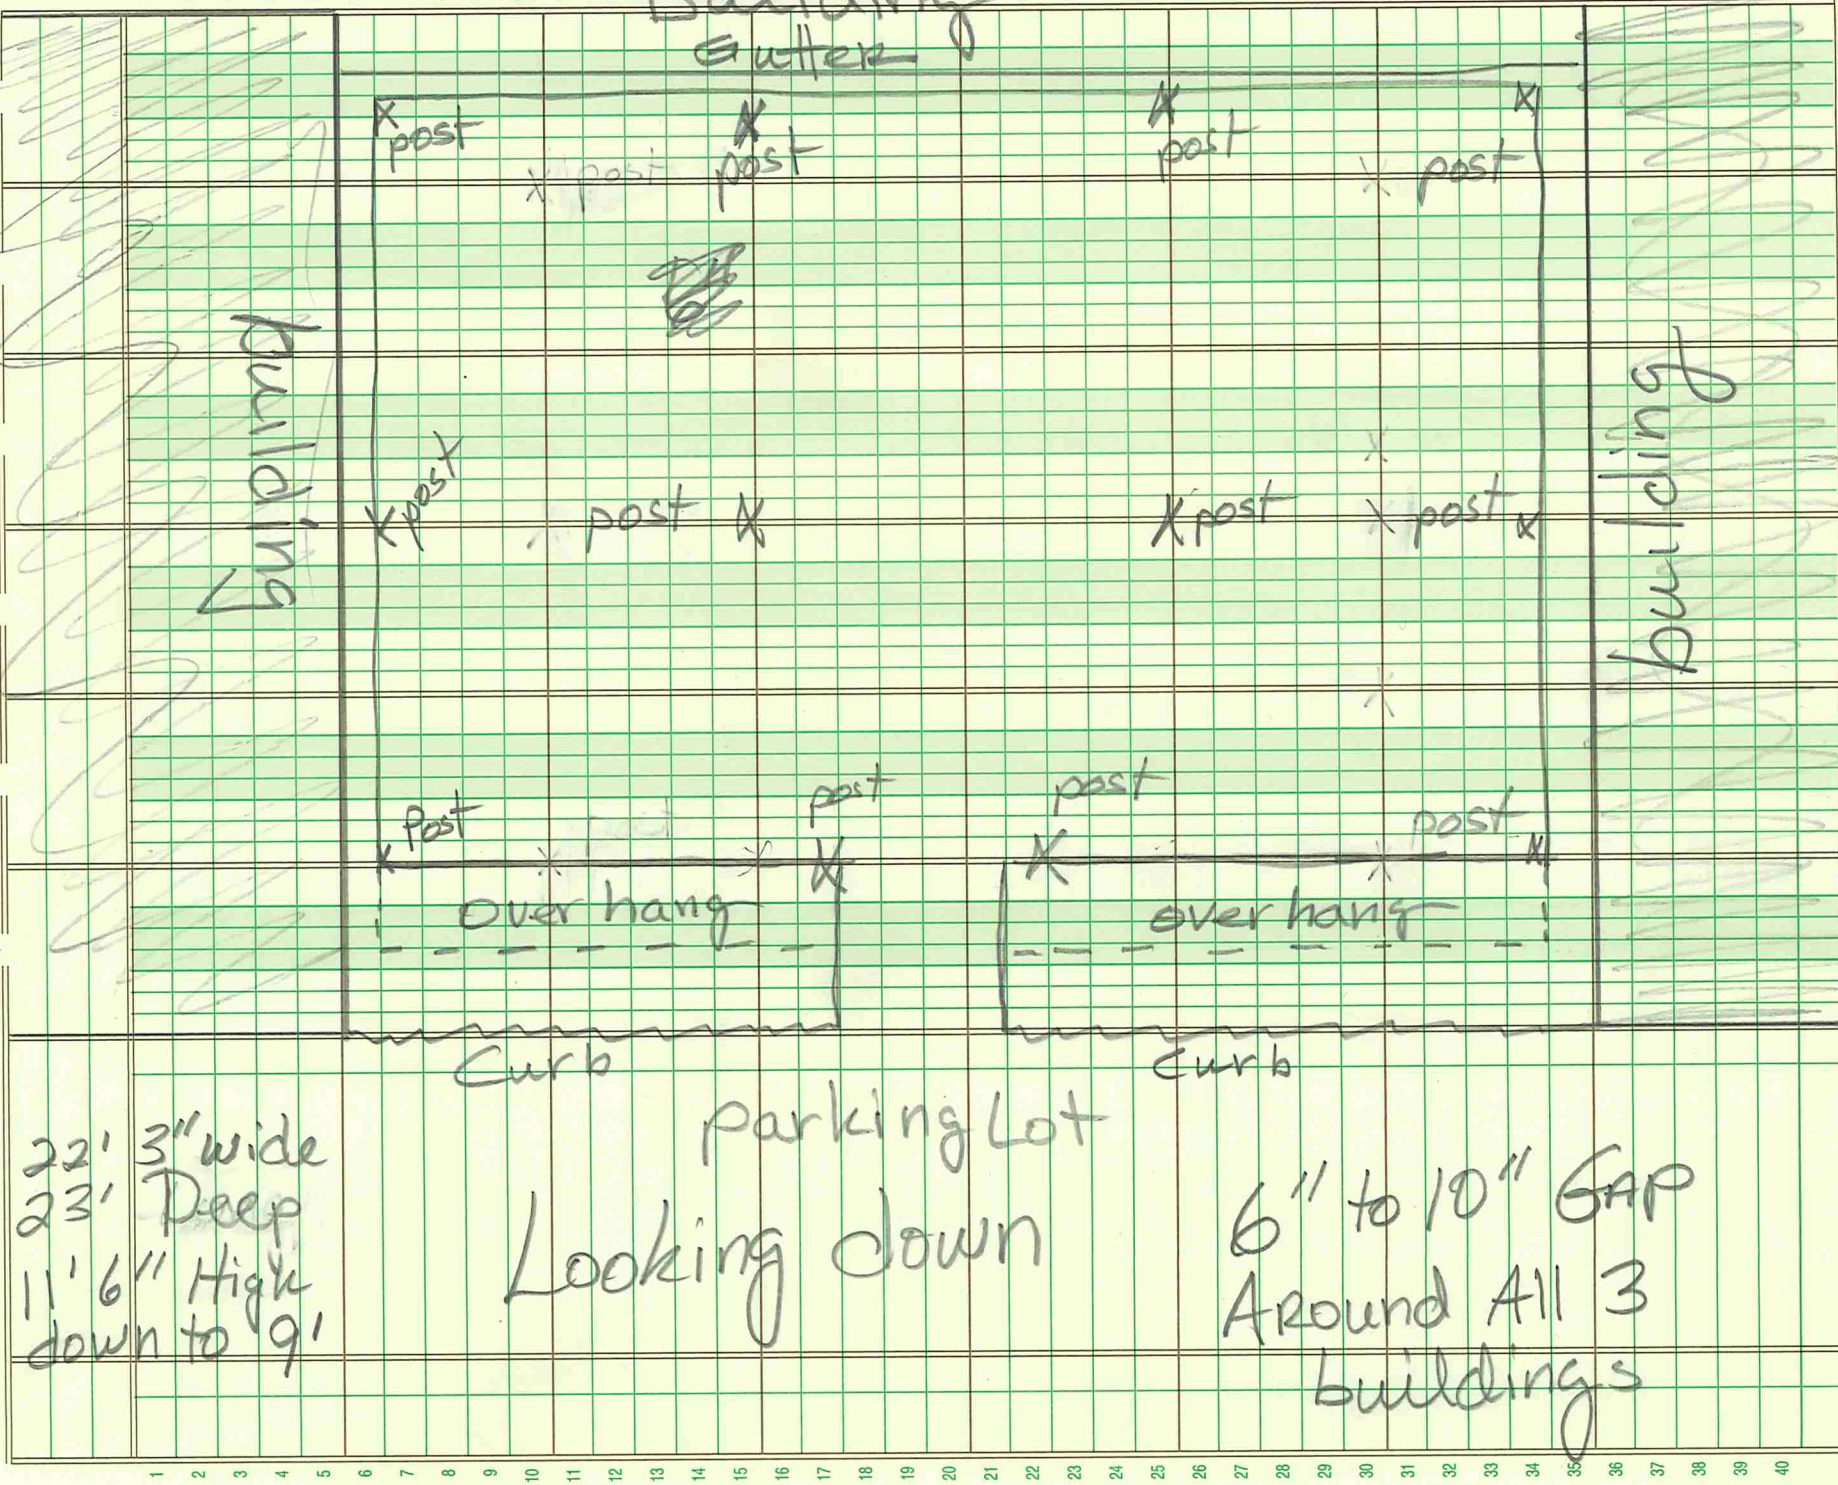 Building
Gutter
post
post
post
post
post
post
building
building
post
post
post
post
post
post
post
Post
post
over hang
over hang
Curb
curb
parking Lot
22' 3" wide
23' Deep
11' 6" High
down to 9'
Looking down
6" to 10" GAP
Around All 3
buildings
1 2 3 4 5 6 7 8 9 10 11 12 13 14 15 16 17 18 19 20 21 22 23 24 25 26 27 28 29 30 31 32 33 34 35 36 37 38 39 40